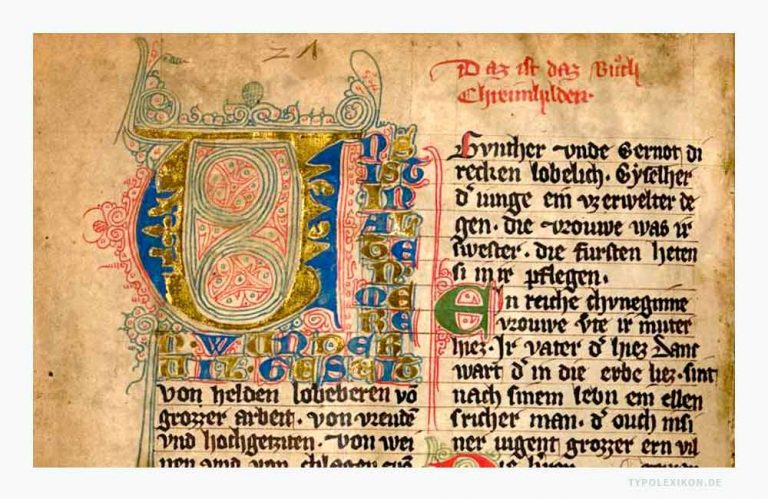 21
Daz ist daz Bůch
Chreimhilden.
U
NS
IST
IN
AL
TE
N
ME
RE
N. WUNDER
VIL. GESEIT
von helden lobeberen võ
grozzer arbeit. von vreudẽ
vnd hochgetziten. von wei
nen vnd von chlagen
Gvnther vnde Gernot di
recken lobelich. Gyselher
d̾ iunge ein vz erwelter de
gen. die vrouwe was ir
swester. die fursten heten
si in ir pflegen.
Ein reiche chvneginne
vrouwe Vte ir muter
hiez. Ir vater d̾ hiez Danc
wart d̾ in die erbe liez. sint
nach sinem lebn ein ellen
sricher man. d̾ ouch in si
ner iugent grozzer ern vil
TYPOLEXIKON.DE